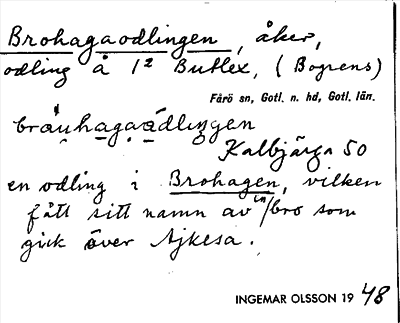 Brohagaodlingen, åker,
odling å 1² Butlex, (Bogrens)
Fårö sn, Gotl. n. hd, Gotl. län.
bråuhagaädlingen
Kalbjärga 50
en odling i Brohagen, vilken
fått sitt namn av en bro som
gick över Ajkesa.
INGEMAR OLSSON 1948